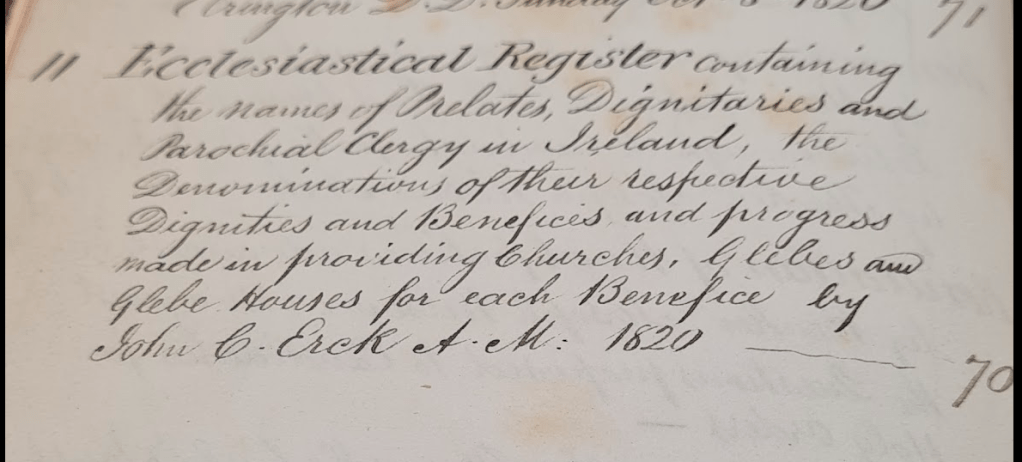 Arrington D.D. Sunday Oct 8 1820 71
11 Ecclesiastical Register containing
the names of Prelates, Dignitaries and
Parochial Clergy in Ireland, the
Denominations of their respective
Dignities and Benefices and progress
made in providing Churches, Glebes and
Glebe Houses for each Benefice by
John C. Erck A.M: 1820
70